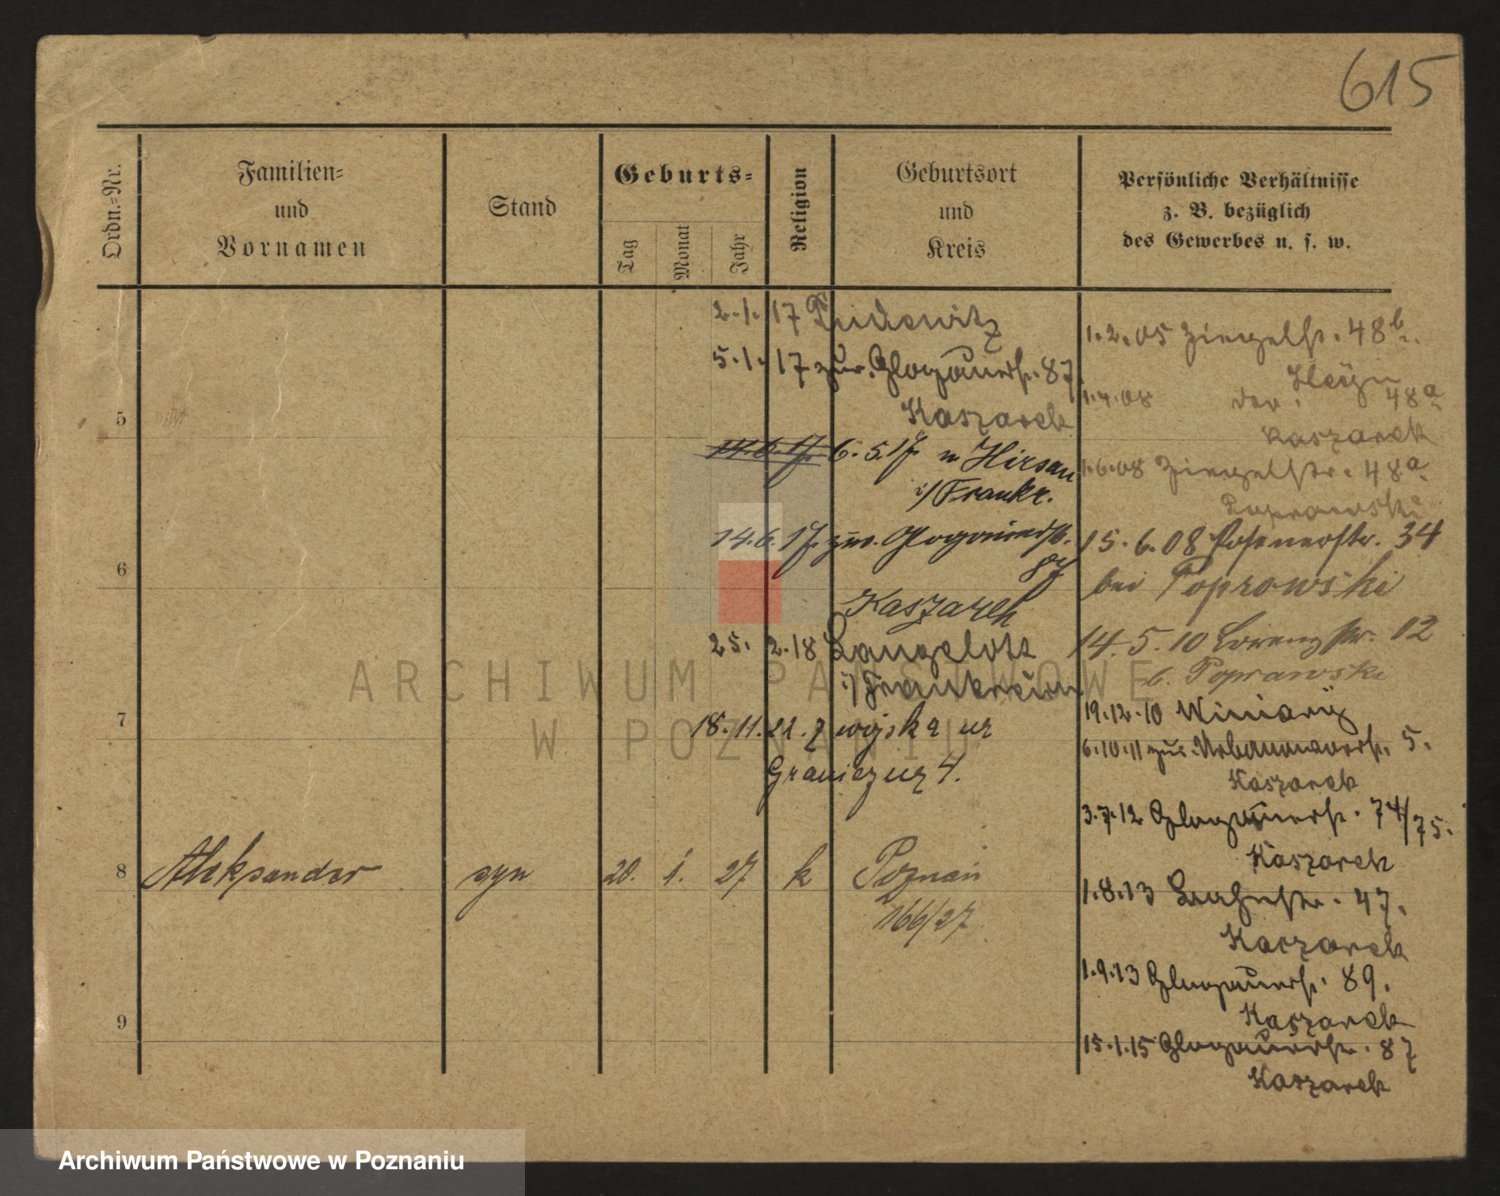 615
Ordn.-Nr.
Familien-
und
Vornamen
Stand
Geburts-
Tag
Monat
Jahr
Religion
Geburtsort
und
Kreis
Persönliche Verhältnisse
z. B. bezüglich
des Gewerbes u. s. w.
2.1.17
5.1.17 zur. Glogauerstr. 87
Kaszarek
14.6.17 6.5.17 n Hirsau
i/Frankr.
14.6.17 zur. Glogauerstr.
87
Kaszarek
25. 2.18
i/Frankreich
18.11.21. z wojska ur
Graniczny 4.
5
6
7
8
Aleksander
syn
20.
1.
27
k
Poznań
166/27
9
1.2.05 Ziegelstr. 48b.
1.4.08 48a
Kaszarek
1.6.08 Ziegelstr. 48a
Poprawski
15.6.08 Posenerstr. 34
bei Poprowski
14.5.10 Lorenzstr. 12
b. Poprawski
19.12.10 Winiary
6.10.11 zur. 5.
Kaszarek
3.7.12 Glogauerstr. 74/75.
Kaszarek
1.8.13 47.
Kaszarek
1.9.13 Glogauerstr. 89.
Kaszarek
15.1.15 Glogauerstr. 87
Kaszarek
ARCHIWUM PAŃSTWOWE
W POZNANIU
Archiwum Państwowe w Poznaniu